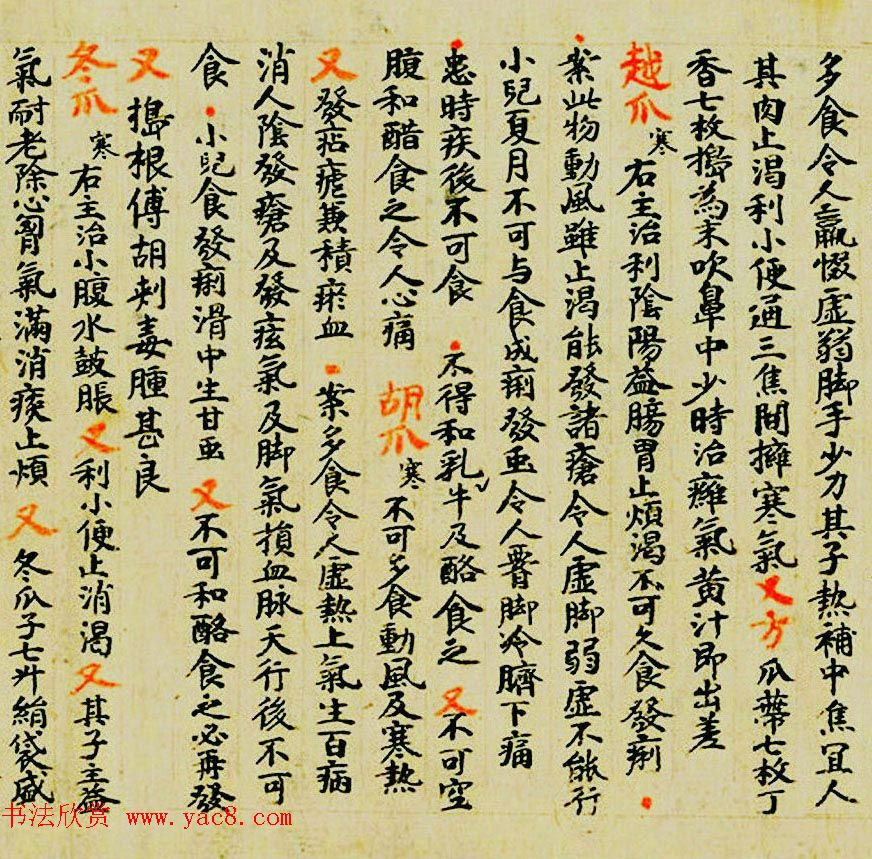 多食令人羸惙虛弱脚手少力其子熱補中焦宜人
其肉止渴利小便通三焦間擁塞氣又方瓜蔕七枚丁
香七枚擣為末吹鼻中少時治癰氣黃汁即出差
越瓜寒右主治利陰陽益腸胃止煩渴不可久食發痢
案此物動風雖止渴能發諸瘡令人虛脚弱虛不能行
小兒夏月不可与食成痢發虫令人腰脚冷臍下痛
患時疾後不可食 不得和乳牛及酪食之又不可空
腹和醋食之令人心痛 胡瓜寒不可多食動風及寒熱
又發痁瘧兼積瘀血 案多食令人虛熱上氣生百病
消人陰發瘡及發痃氣及脚氣損血脉天行後不可
食 小兒食發痢滑中生甘虫又不可和酪食之必再發
又擣根傅胡刺毒腫甚良
冬瓜寒右主治小腹水鼓脹又利小便止消渴又其子主益
氣耐老除心胷氣滿消痰止煩又冬瓜子七升絹袋盛
书法欣赏 www.yac8.com